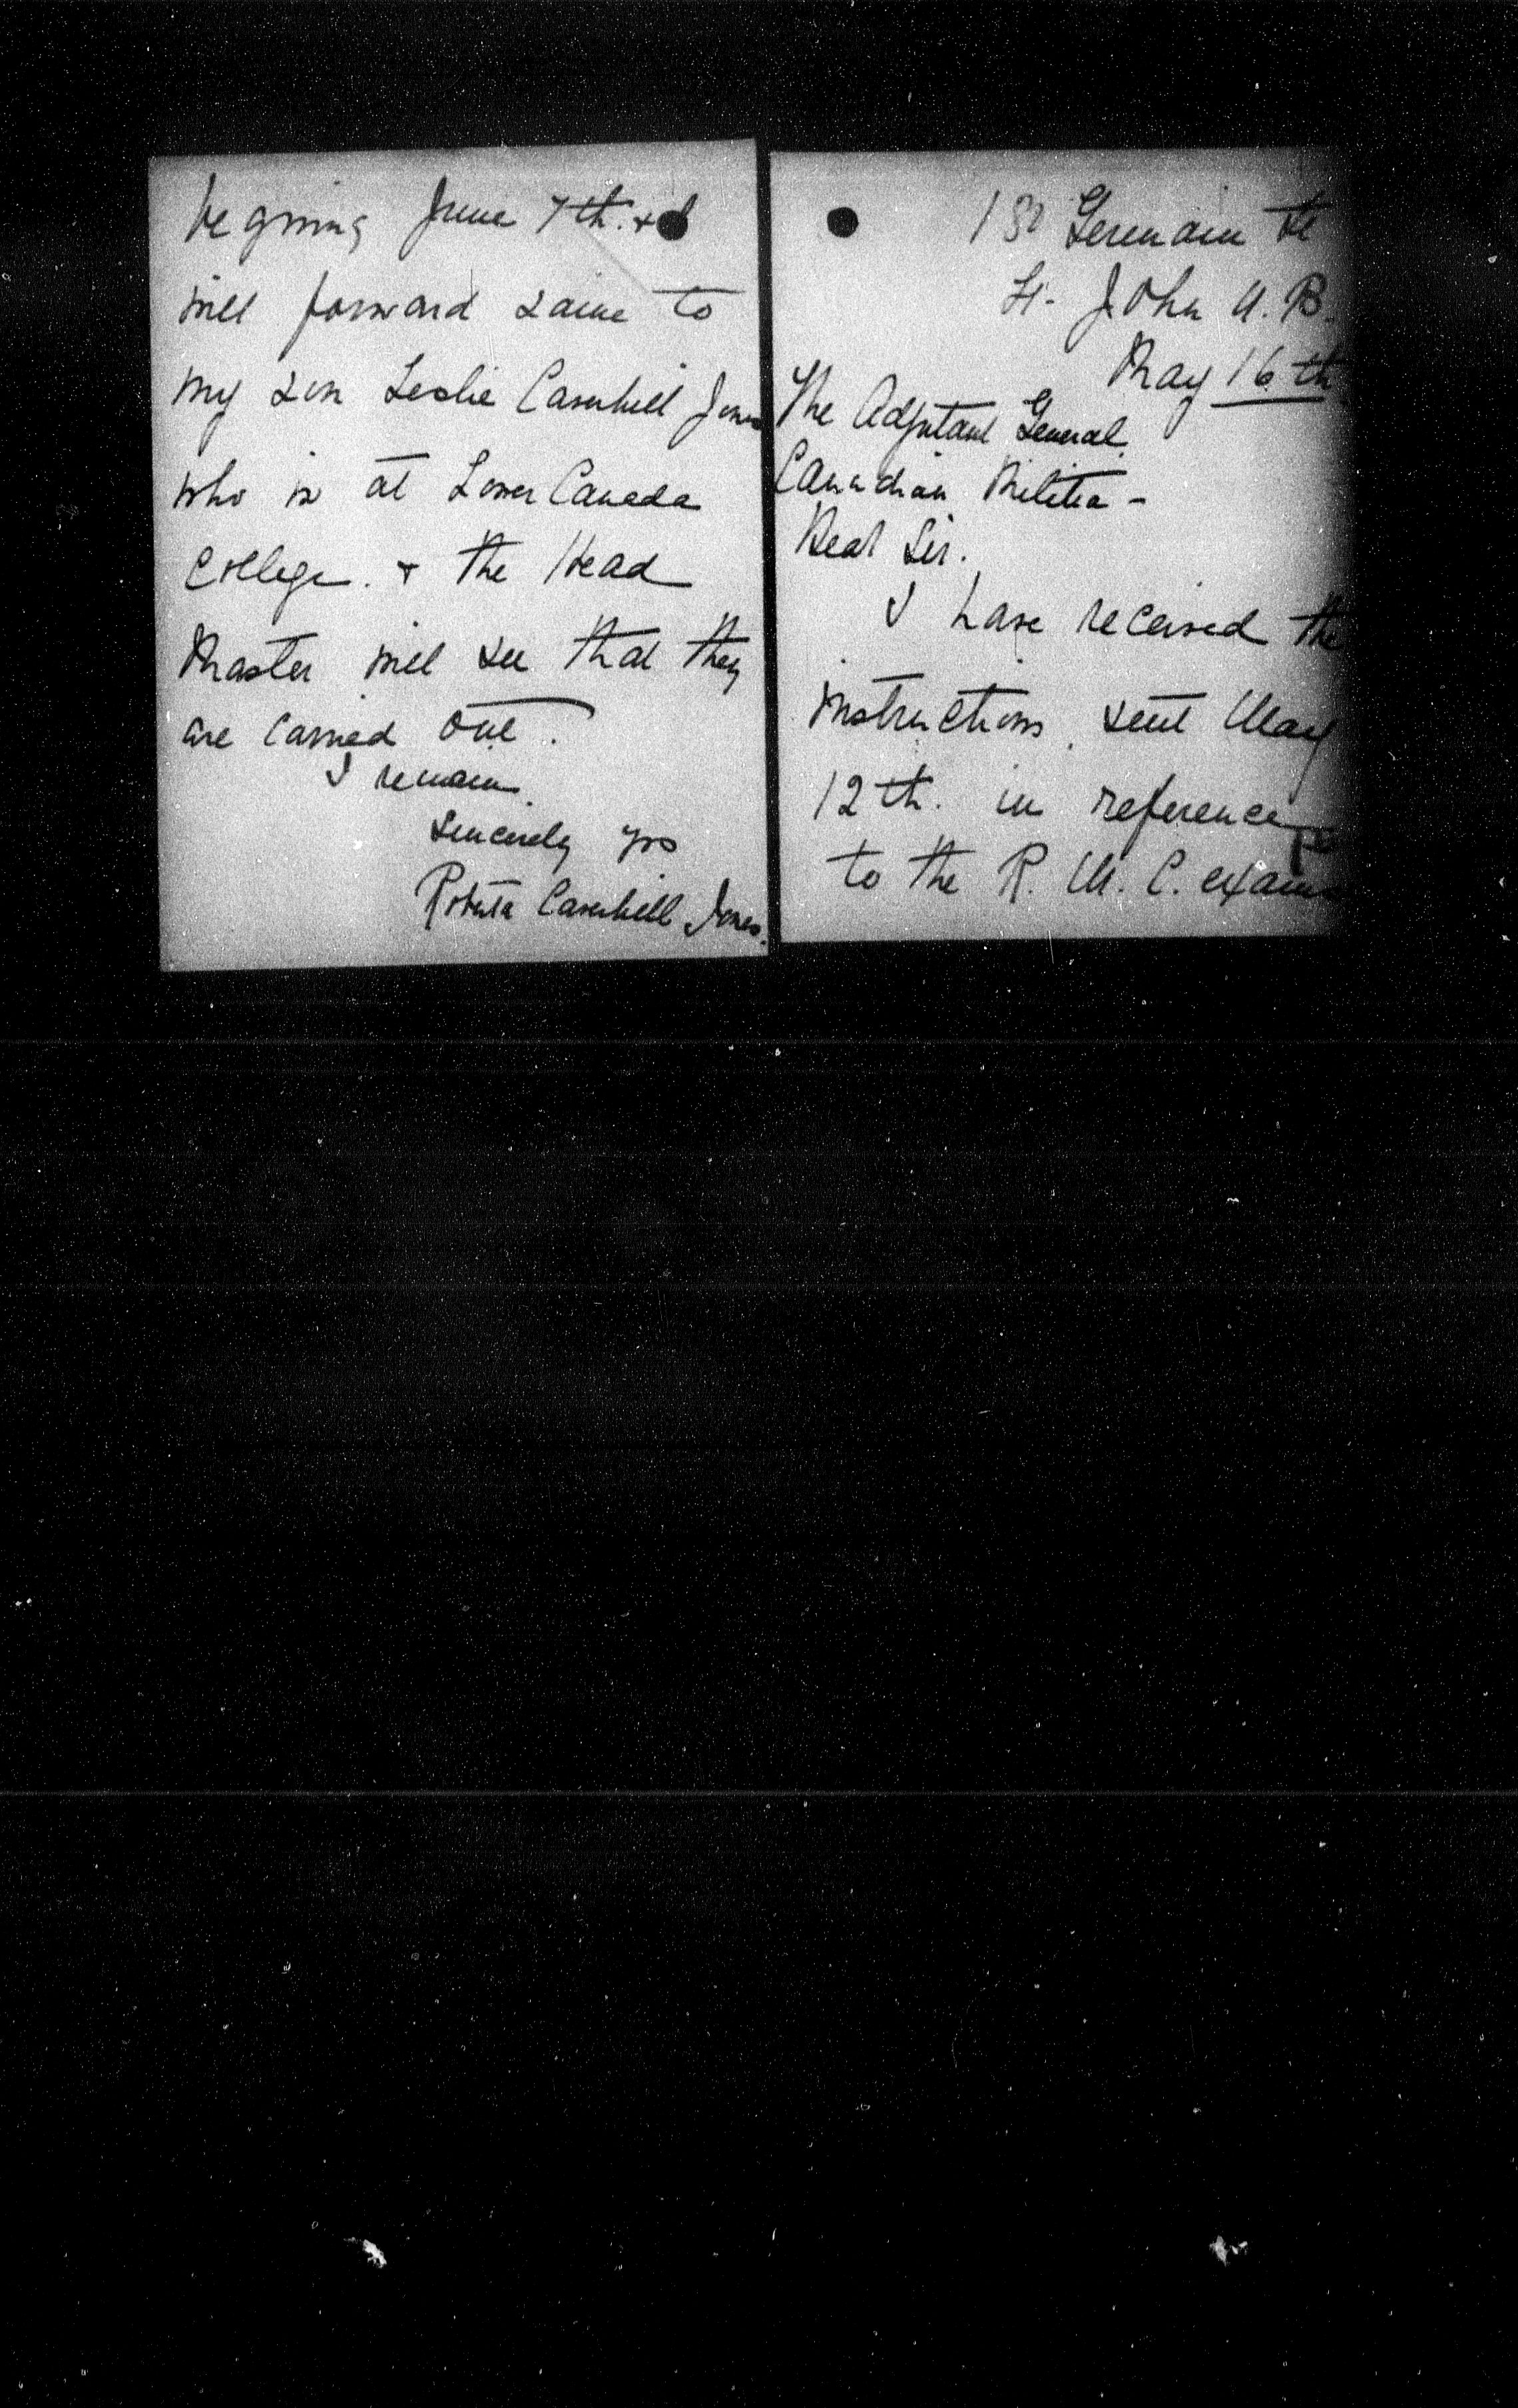 Germain St
St. John N.B.
May 16th
The Adjutant General.
Canadian Militia -
Dear Sir.
I have received the
instructions sent May
12th. in reference
to the R. M. C. exams
begining June 7th. + I
will forward same to
my son Leslie Carnhill Jones
who is at Lower Canada
College. + the Head
Master will see that they
are carried out.
I remain.
Sincerely yrs
Roberta Jones.